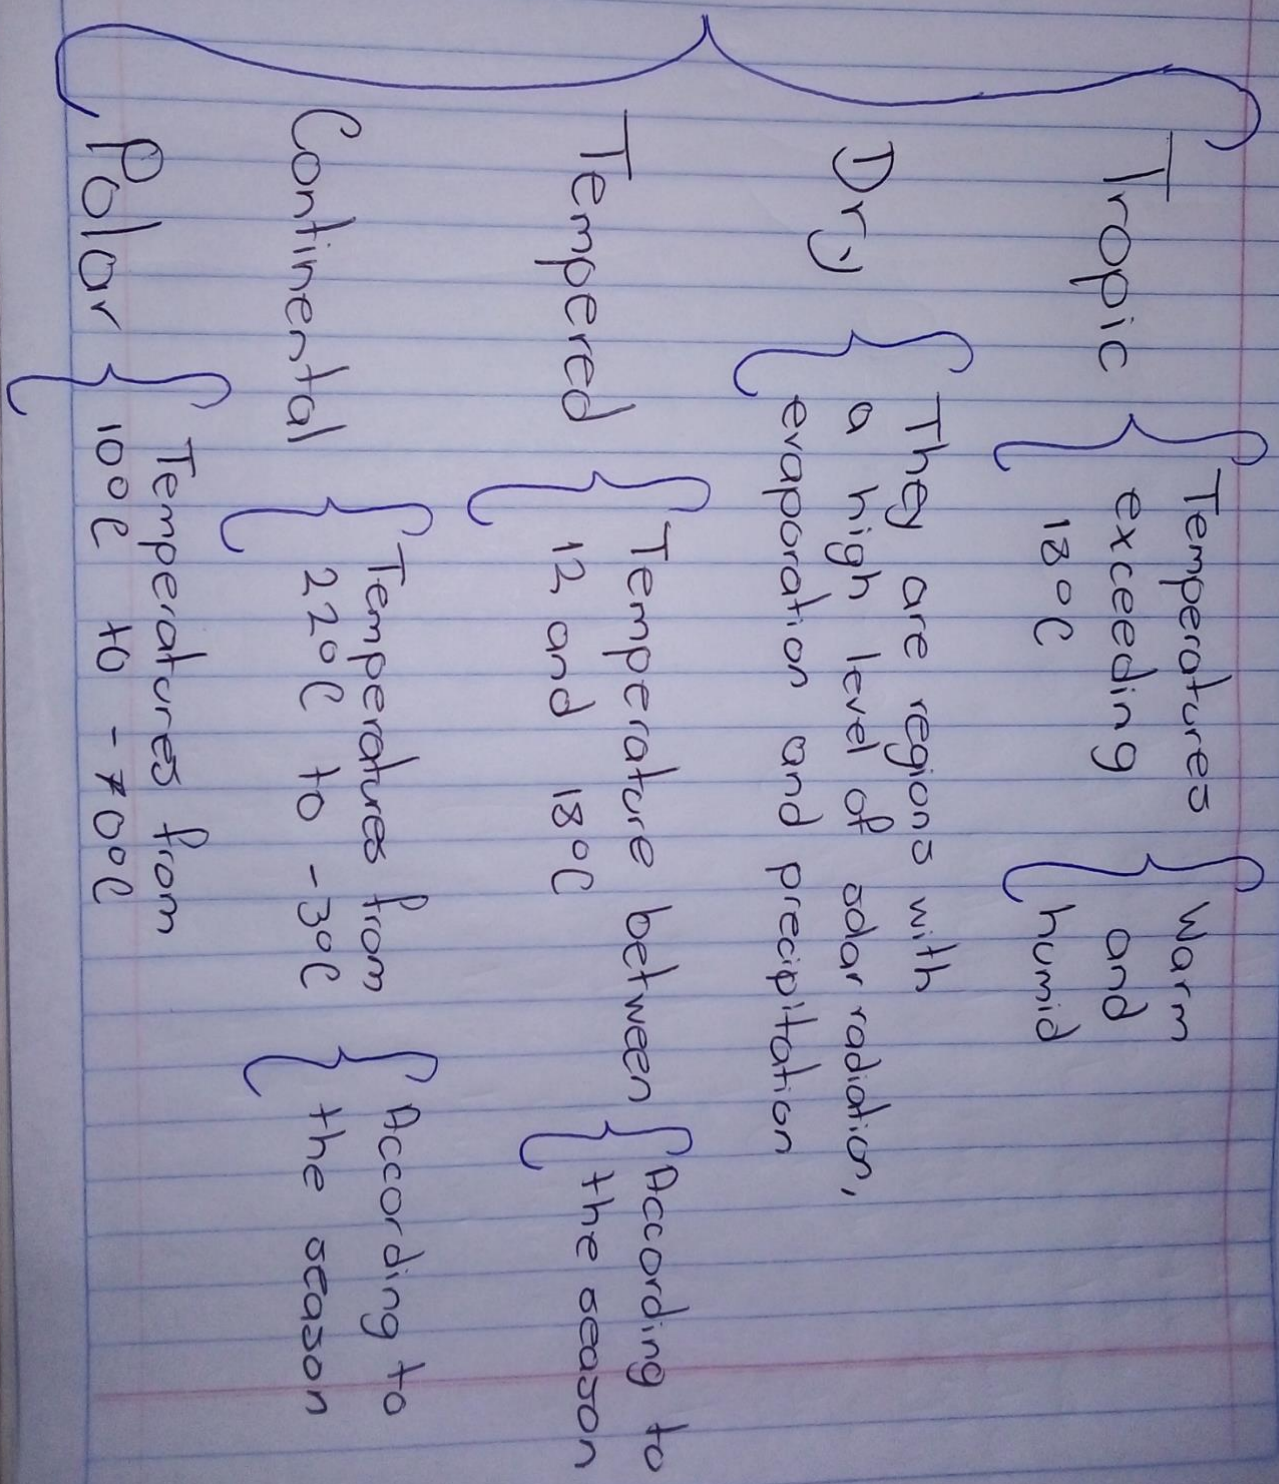 Tropic
Temperatures
exceeding
18°C
Warm
and
humid
Dry
They are regions with
a high level of solar radiation,
evaporation and precipitation
Tempered
Temperature between
12 and 18°C
According to
the season
Continental
Temperatures from
22°C to -3°C
According to
the season
Polar
Temperatures from
10°C to -70°C